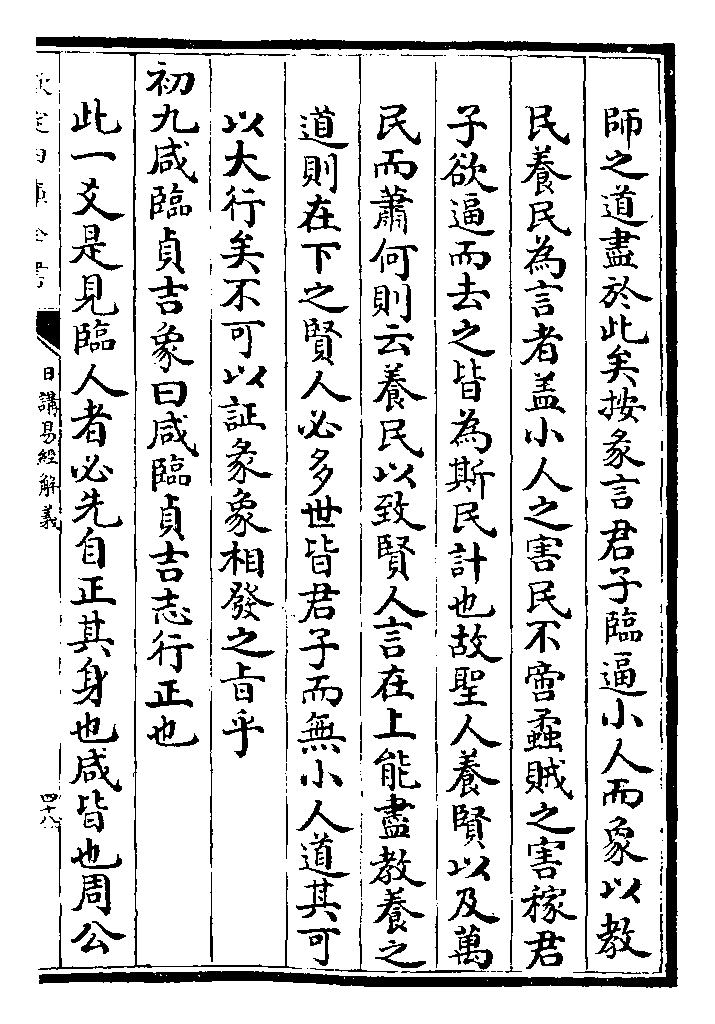 師之道盡於此矣按彖言君子臨逼小人而象以教
民養民為言者盖小人之害民不啻蟊賊之害稼君
子欲逼而去之皆為斯民計也故聖人養賢以及萬
民而蕭何則云養民以致賢人言在上能盡教養之
道則在下之賢人必多世皆君子而無小人道其可
以大行矣不可以証彖象相發之旨乎
初九咸臨貞吉象曰咸臨貞吉志行正也
此一爻是見臨人者必先自正其身也咸皆也周公
欽定四庫全書
日講易經解義
四十八